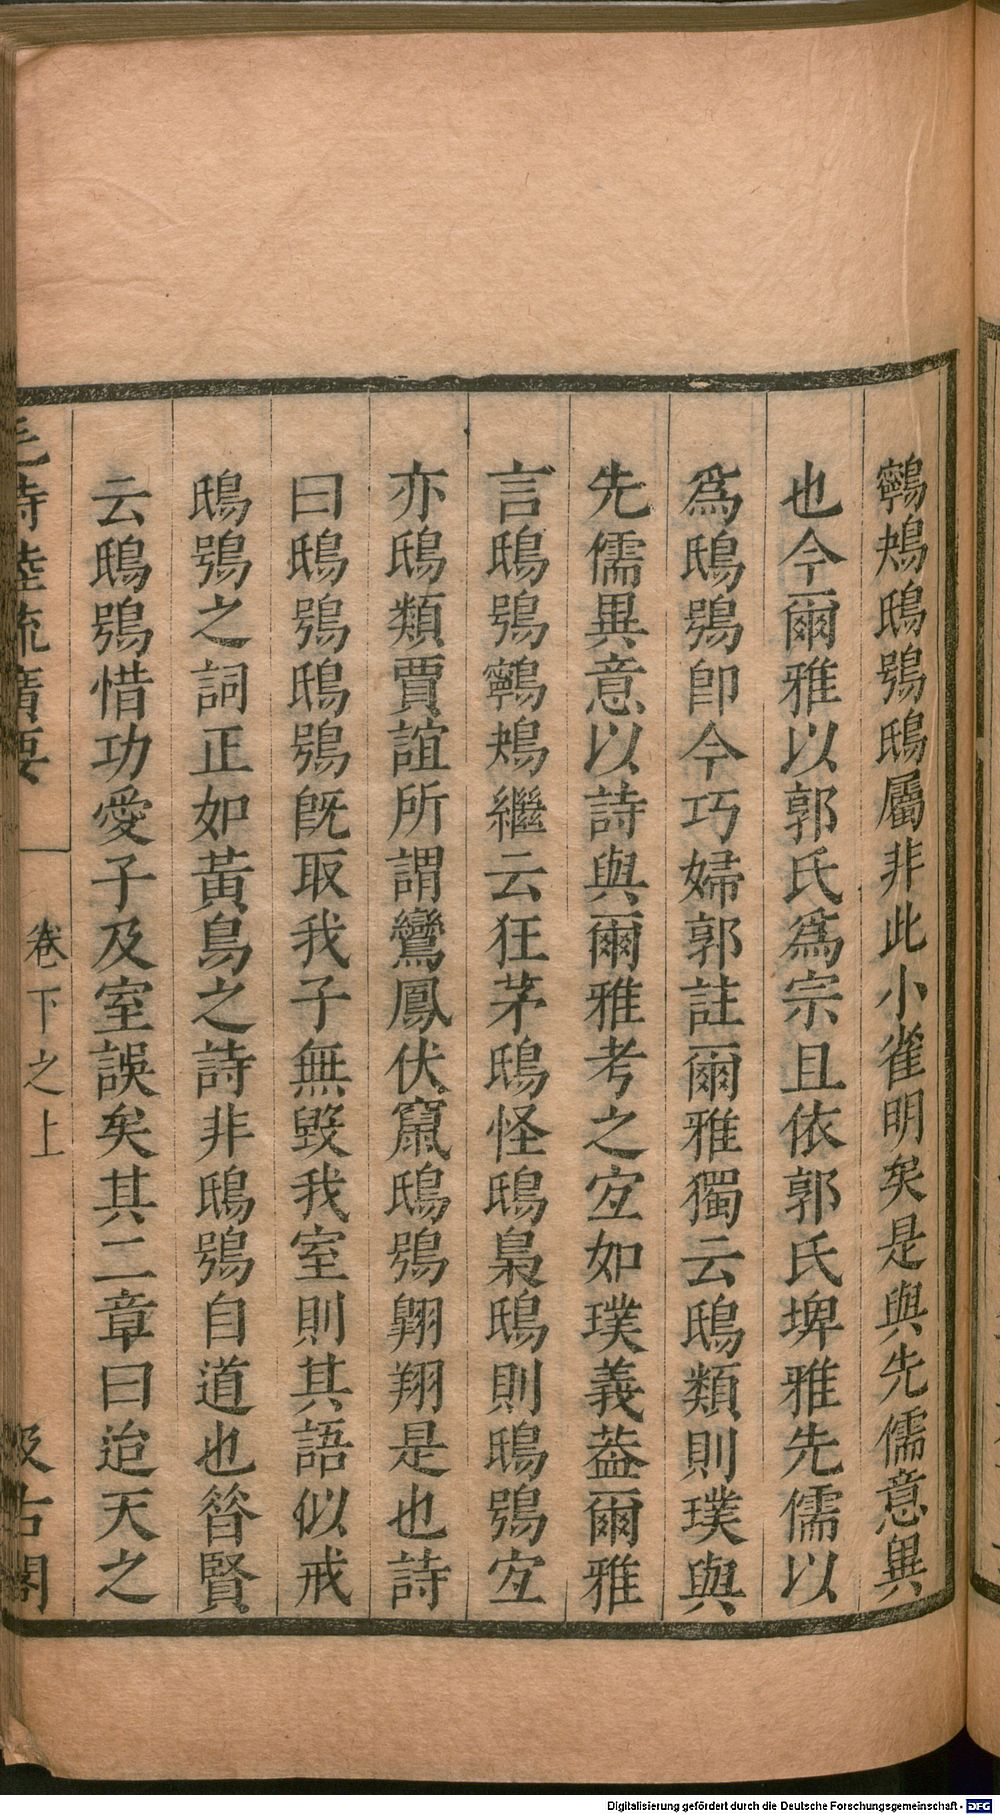 鸋鴂鴟鴞鴟屬非此小雀明矣是與先儒意異
也今爾雅以郭氏爲宗且依郭氏埤雅先儒以
爲鴟鴞卽今巧婦郭註爾雅獨云鴟類則璞與
先儒異意以詩與爾雅考之宐如璞義葢爾雅
言鴟鴞鸋鴂繼云狂茅鴟怪鴟梟鴟則鴟鴞宐
亦鴟類賈誼所謂鸞鳳伏竄鴟鴞翺翔是也詩
曰鴟鴞鴟鴞旣取我子無毀我室則其語似戒
鴟鴞之詞正如黃鳥之詩非鴟鴞自道也昝賢
云鴟鴞惜功愛子及室誤矣其二章曰迨天之
毛詩陸疏廣要 卷下之上 汲古閣
Digitalisierung gefördert durch die Deutsche Forschungsgemeinschaft - DFG